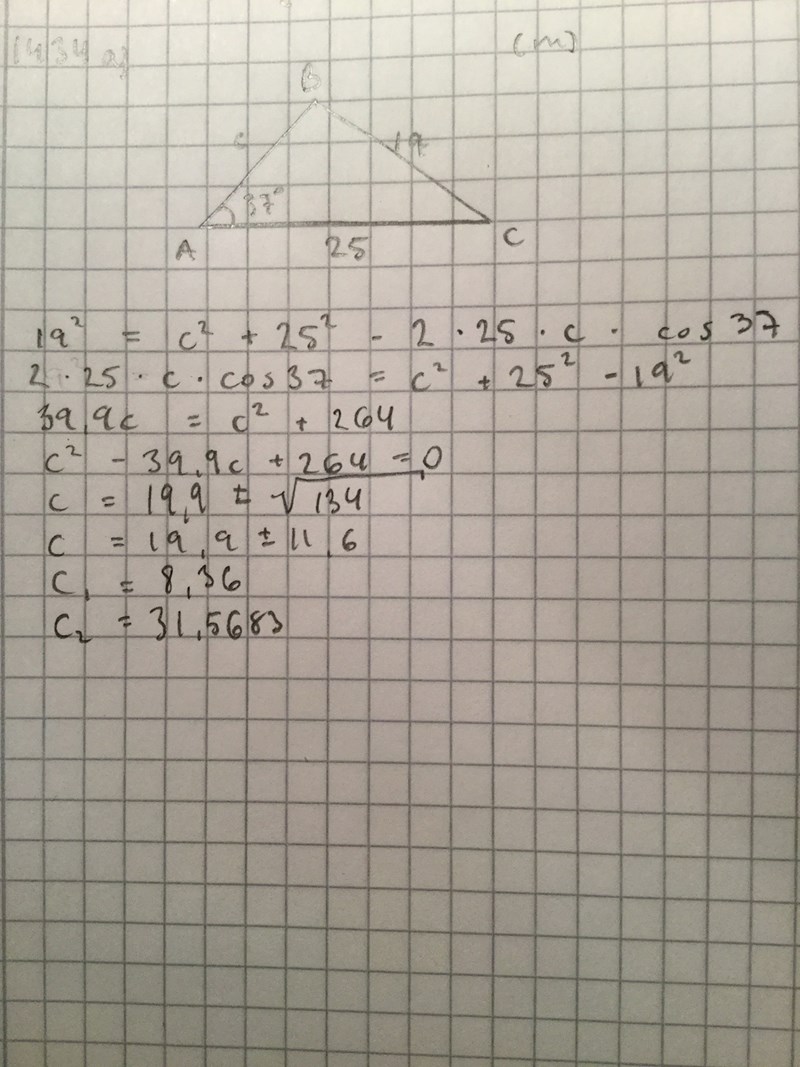 1434 a)
(m)
B
c
19
37°
A
25
C
19² = c² + 25² - 2 · 25 · c · cos 37
2 · 25 · c · cos 37 = c² + 25² - 19²
39,9c = c² + 264
c² - 39,9c + 264 = 0
c = 19,9 ± √134
c = 19,9 ± 11,6
C₁ = 8,36
C₂ = 31,5683